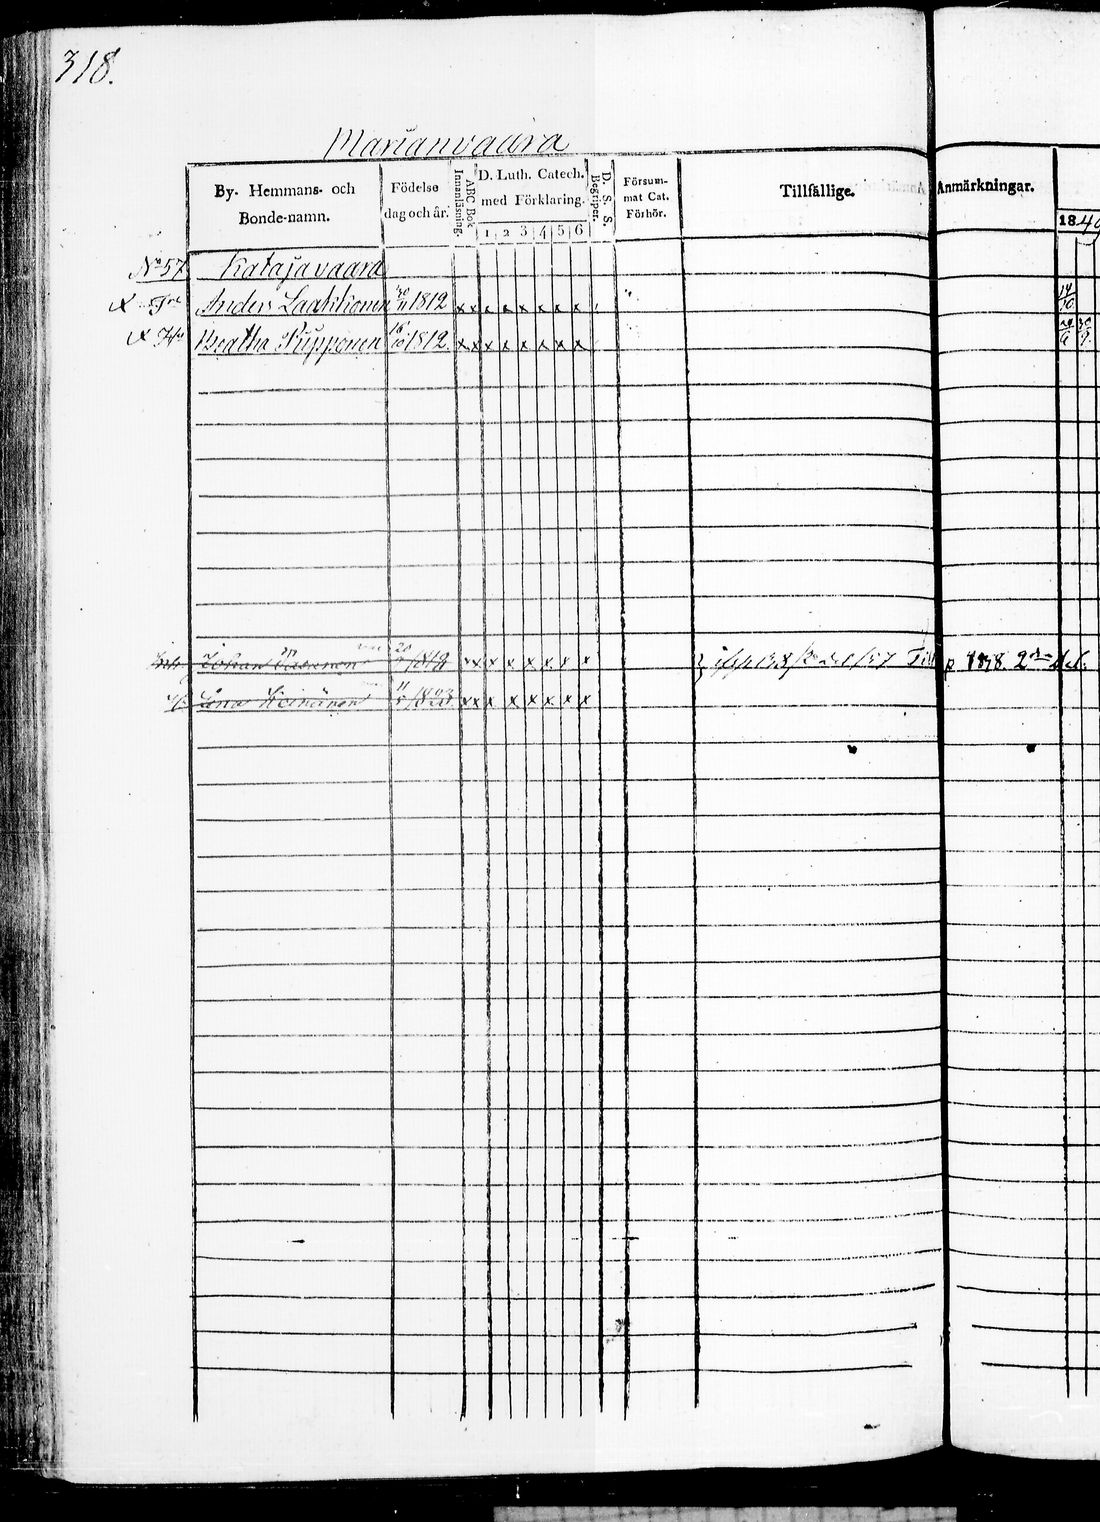 318.
Marianvaara
By- Hemmans- och Bonde-namn.
Födelse dag och år.
ABC Bok Innanläsning.
D. Luth. Catech. med Förklaring.
1 2 3 4 5 6
D. S. S. Begriper.
Försum- mat Cat. Förhör.
Tillfällige.
Anmärkningar.
1840
No 57 Katajavaara
x Anders Laakkonen 30/11 1812 x x x x x x x x 14/10
x Hu Beatha Pupponen 16/10 1812 x x x x x x x x 24/6 30/9
Johan 20 x x x x x x x x p 1878. 2
Lena Heinänen 11 1823 x x x x x x x x